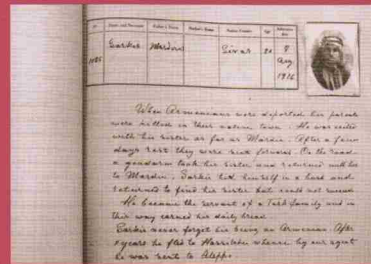 No
Name and Surname
Father's Name
Mother's Name
Native Country
Age
Admission
1186
Sarkis
Sivas
20
8
Aug
1926
When Armenians were deported his parents
were killed in their native town. He was exiled
with his sister as far as Mardin. After a few
days rest they were sent forward. On the road
a gendarm took his sister and returned with her
to Mardin. Sarkis hid himself in a and
returned to find his sister but could not
He became the servant of a Turk family and in
this way earned his daily bread.
Sarkis never forgot his being an Armenian. After
years he fled to whence by our agent
he was sent to Aleppo